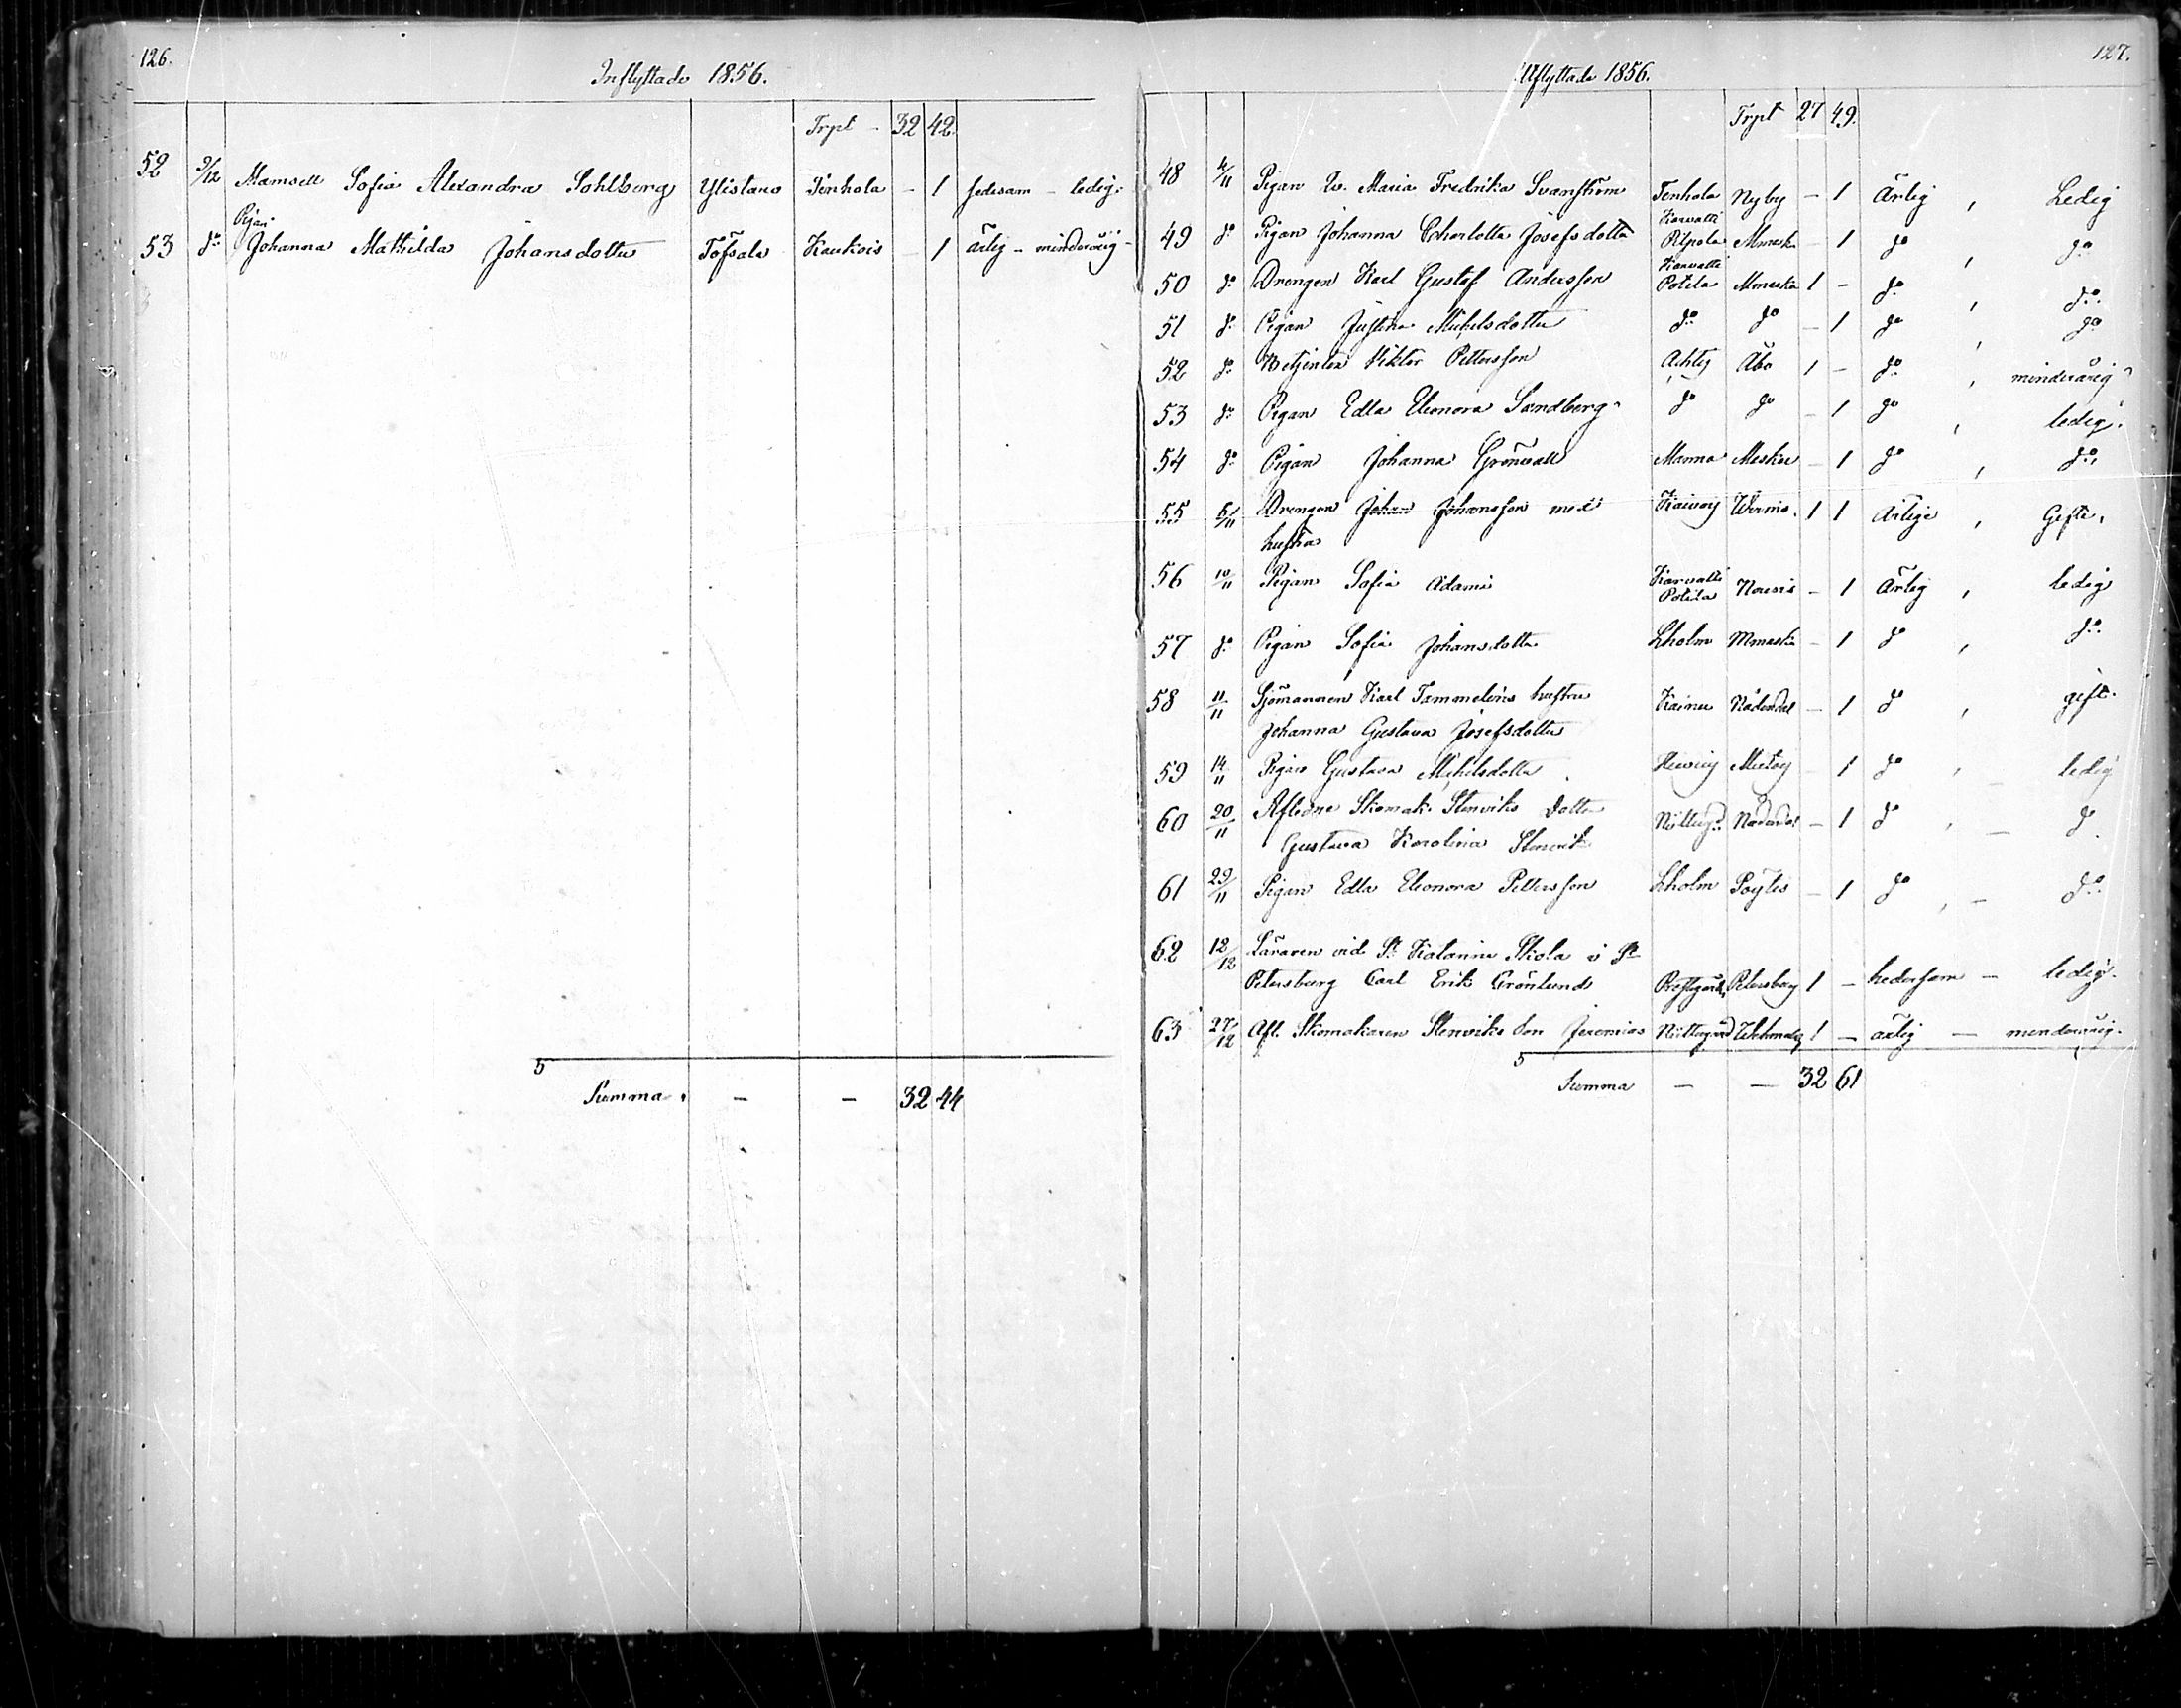 126.
Inflyttade 1856.
Trpt - 32 42.
52 9/12 Mamsell Sofia Alexandra Sohlberg Ylistaro Tenhola - 1 sedesam - ledig.
Pigan
53 do Johanna Mathilda Johansdotter Töfsala Kaukois - 1 ärlig - minderårig -
5
Summa. - - 32 44
127.
Utflyttade 1856.
Trpt 27 49.
48 4/11 Pigan Maria Fredrika Svanström Tenhola Nyby - 1 Ärlig, Ledig
Karvatti
49 do Pigan Johanna Charlotta Josefsdotter - 1 do, do
Karvatti
50 do Drengen Karl Gustaf Andersson Potila 1 - do, do
51 do Pigan Justina Mikelsdotter do do - 1 do, do
52 do Betjenten Viktor Pettersson Åbo 1 - do, minderårig
53 do Pigan Edla Eleonora Sandberg do do - 1 do, ledig.
54 do Pigan Johanna Grönvall Manna Masku - 1 do, do,
55 6/11 Drengen Johan Johansson med Wirmo. 1 1 Ärlige, Gifte,
hustru
56 10/11 Pigan Sofia Adami Karvatti Nousis - 1 Ärlig, ledig
Potila
57 do Pigan Sofia Johansdotter Lholm - 1 do, do
58 11/11 Sjömannen Karl Tammelins hustru Kainu Nådendal - 1 do, gift.
Johanna Gustava Josefsdotter
59 14/11 Pigan Gustava Mikelsdotter - 1 do, ledig
60 20/11 Aflidne Skomak. Stenviks Dotter Nådendal - 1 do, - do
Gustava Karolina Stenvik
61 29/11 Pigan Edla Eleonora Pettersson Lholm Pöytis - 1 do, - do
62 12/12 Läraren vid St Katarina Skola i St
Petersburg Carl Erik Grönlund Prestgård Petersburg 1 - hedersam - ledig.
63 27/12 Afl. Skomakaren Stenviks Son Jeremias 1 - ärlig - minderårig.
5
Summa - - 32 61